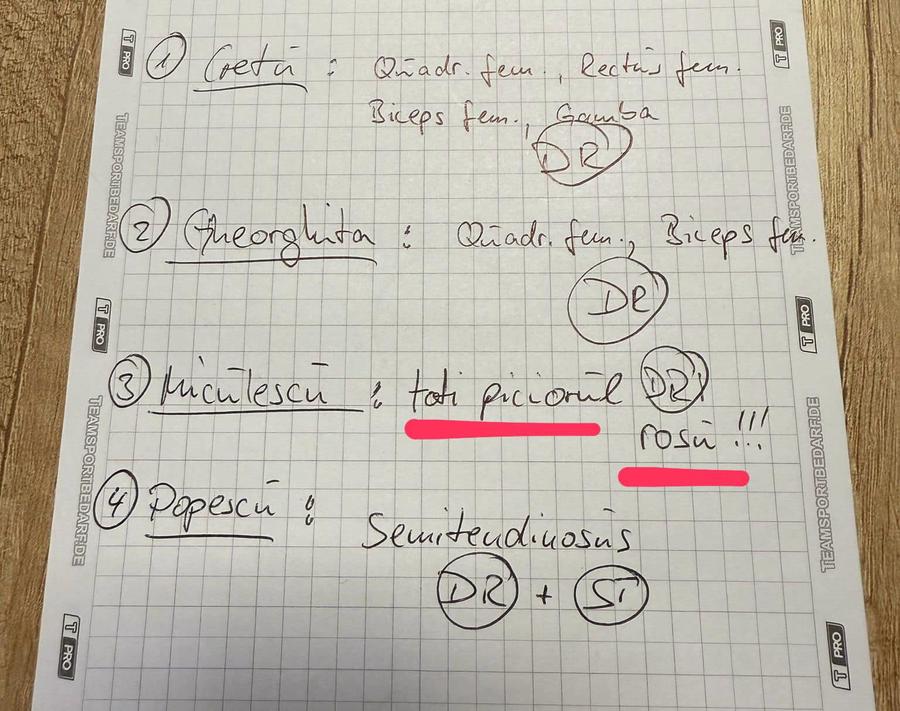 ① Cretu : Quadr. fem., Rectus fem.
Biceps fem., Gamba
DR
② Gheorghita : Quadr. fem., Biceps fem.
DR
③ Miculescu : toti piciorul DR
rosu !!!
④ Popescu :
Semitendinosus
DR + ST
T PRO
TEAMSPORTBEDARF.DE
T PRO
TEAMSPORTBEDARF.DE
T PRO
T PRO
TEAMSPORTBEDARF.DE
T PRO
TEAMSPORTBEDARF.DE
T PRO